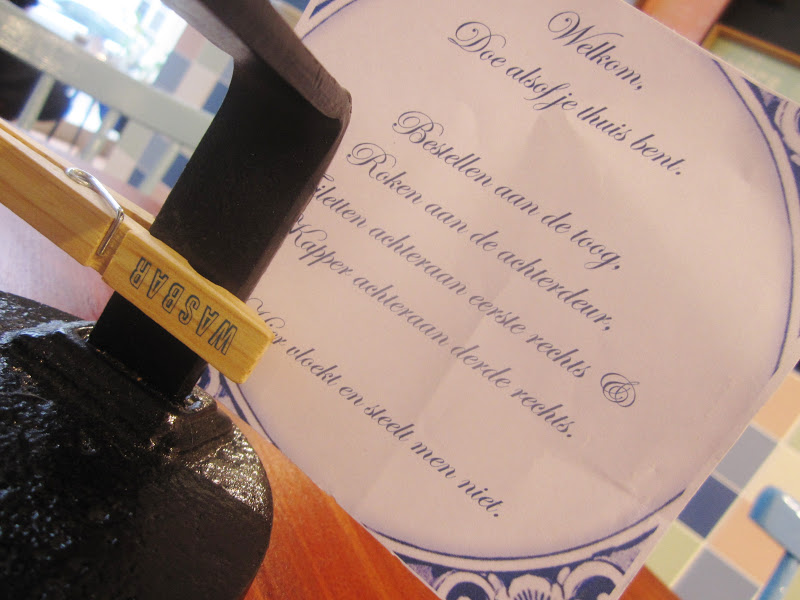 Welkom,
Doe alsof je thuis bent.
Bestellen aan de toog,
Roken aan de achterdeur,
Toiletten achteraan eerste rechts &
Kapper achteraan derde rechts.
Hier vloekt en steelt men niet.
WASBAR